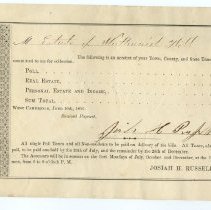 M Estate of Nathaniel Hill
The following is an account of your Town, County, and State
committed to me for collection.
Poll,
Real Estate,
Personal Estate and Income,
Sum Total,
West Cambridge, June 10th,
Received Payment,
Josiah H. Russell
All single Poll Taxes and all Non-residents to be paid on delivery of the bills. All Taxes,
to be paid the 20th of July, and the remainder the 20th of December.
The Assessors will be in session on the first Mondays of July, October and December, at the
from 6 to 8 o'clock P. M.
JOSIAH H. RUSSELL